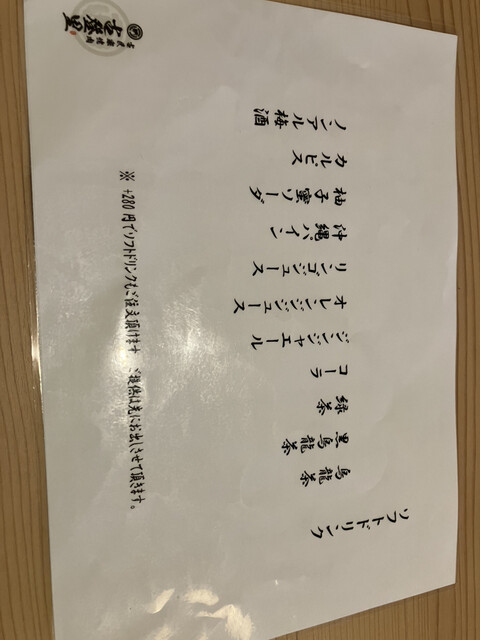 ソフトドリンク
烏龍茶
黒烏龍茶
緑茶
コーラ
ジンジャエール
オレンジジュース
リンゴジュース
沖縄パイン
柚子蜜ソーダ
カルピス
ノンアル梅酒
※ +280円でソフトドリンクもご注文頂けます ご提供は先にお出しさせて頂きます。